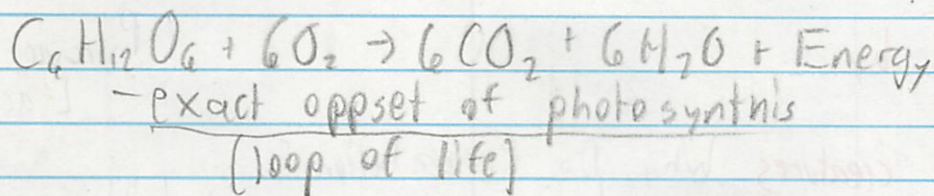 C₆H₁₂O₆ + 6O₂ → 6CO₂ + 6H₂O + Energy
-exact oppset of photosynthis
(loop of life)